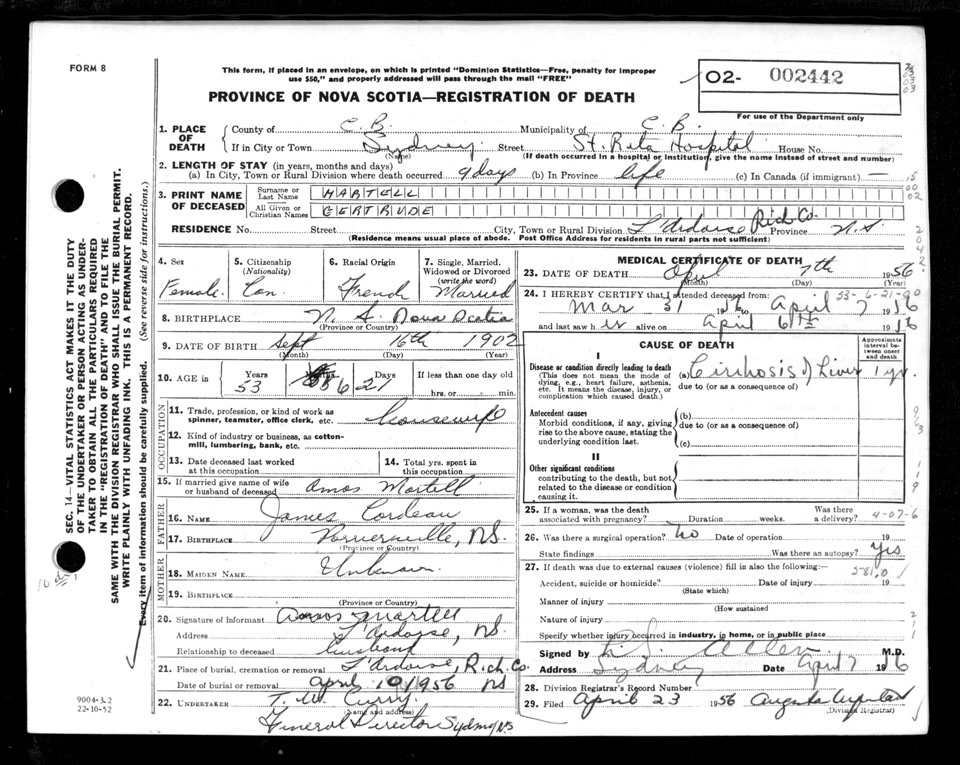 FORM 8
This form, if placed in an envelope, on which is printed "Dominion Statistics—Free, penalty for improper
use $50," and properly addressed will pass through the mail "FREE"
O2- 002442
PROVINCE OF NOVA SCOTIA—REGISTRATION OF DEATH
For use of the Department only
1. PLACE OF DEATH
County of C. B. Municipality of C. B.
If in City or Town Sydney Street St. Rita Hospital House No.
(Name) (If death occurred in a hospital or institution, give the name instead of street and number)
2. LENGTH OF STAY (in years, months and days)
(a) In City, Town or Rural Division where death occurred 9 days (b) In Province life (c) In Canada (if immigrant) —
3. PRINT NAME OF DECEASED
Surname or Last Name MARTELL
All Given or Christian Names GERTRUDE
RESIDENCE No. Street City, Town or Rural Division L'Ardoise Rich Co. Province N.S.
(Residence means usual place of abode. Post Office Address for residents in rural parts not sufficient)
4. Sex Female
5. Citizenship (Nationality) Can.
6. Racial Origin French
7. Single, Married, Widowed or Divorced (write the word) Married
8. BIRTHPLACE N. S. Nova Scotia
(Province or Country)
9. DATE OF BIRTH Sept 16th 1902
(Month) (Day) (Year)
10. AGE in Years 53 Months 6 Days 21 If less than one day old
hrs. or min.
OCCUPATION
11. Trade, profession, or kind of work as
spinner, teamster, office clerk, etc. housewife
12. Kind of industry or business, as cotton-
mill, lumbering, bank, etc.
13. Date deceased last worked
at this occupation
14. Total yrs. spent in
this occupation
15. If married give name of wife
or husband of deceased Amos Martell
FATHER
16. NAME James Cordeau
17. BIRTHPLACE NS.
(Province or Country)
MOTHER
18. MAIDEN NAME Unknown.
19. BIRTHPLACE
(Province or Country)
20. Signature of Informant Amos Martell
Address L'Ardoise, NS.
Relationship to deceased husband
21. Place of burial, cremation or removal L'Ardoise, Rich. Co.
Date of burial or removal April 10/1956 NS
22. UNDERTAKER T. W. Curry
(Name and address)
Funeral Director Sydney NS
MEDICAL CERTIFICATE OF DEATH
23. DATE OF DEATH April 7th 1956
(Month) (Day) (Year)
53-6-21-90
24. I HEREBY CERTIFY that I attended deceased from:
Mar 31 1956 to April 7 1956
and last saw her alive on April 6th 1956
CAUSE OF DEATH
Approximate interval between onset and death
I
Disease or condition directly leading to death (a) Cirrhosis of Liver 1 yr.
(This does not mean the mode of
dying, e.g., heart failure, asthenia,
etc. It means the disease, injury, or
complication which caused death.)
due to (or as a consequence of)
Antecedent causes (b)
Morbid conditions, if any, giving
rise to the above cause, stating the
underlying condition last.
due to (or as a consequence of)
(c)
II
Other significant conditions
contributing to the death, but not
related to the disease or condition
causing it.
25. If a woman, was the death
associated with pregnancy? Duration weeks. Was there
a delivery? 4-07-6
26. Was there a surgical operation? No Date of operation 19
State findings Was there an autopsy? Yes
27. If death was due to external causes (violence) fill in also the following:— 581.0
Accident, suicide or homicide? Date of injury 19
(State which)
Manner of injury
(How sustained
Nature of injury
Specify whether injury occurred in industry, in home, or in public place
Signed by Allen M.D.
Address Sydney Date April 7 1956
28. Division Registrar's Record Number
29. Filed April 23 1956
(Division Registrar)
SEC. 14—VITAL STATISTICS ACT MAKES IT THE DUTY
OF THE UNDERTAKER OR PERSON ACTING AS UNDER-
TAKER TO OBTAIN ALL THE PARTICULARS REQUIRED
IN THE "REGISTRATION OF DEATH" AND TO FILE THE
SAME WITH THE DIVISION REGISTRAR WHO SHALL ISSUE THE BURIAL PERMIT.
WRITE PLAINLY WITH UNFADING INK. THIS IS A PERMANENT RECORD.
Every item of information should be carefully supplied. (See reverse side for instructions.)
9004-3.2
22-10-52